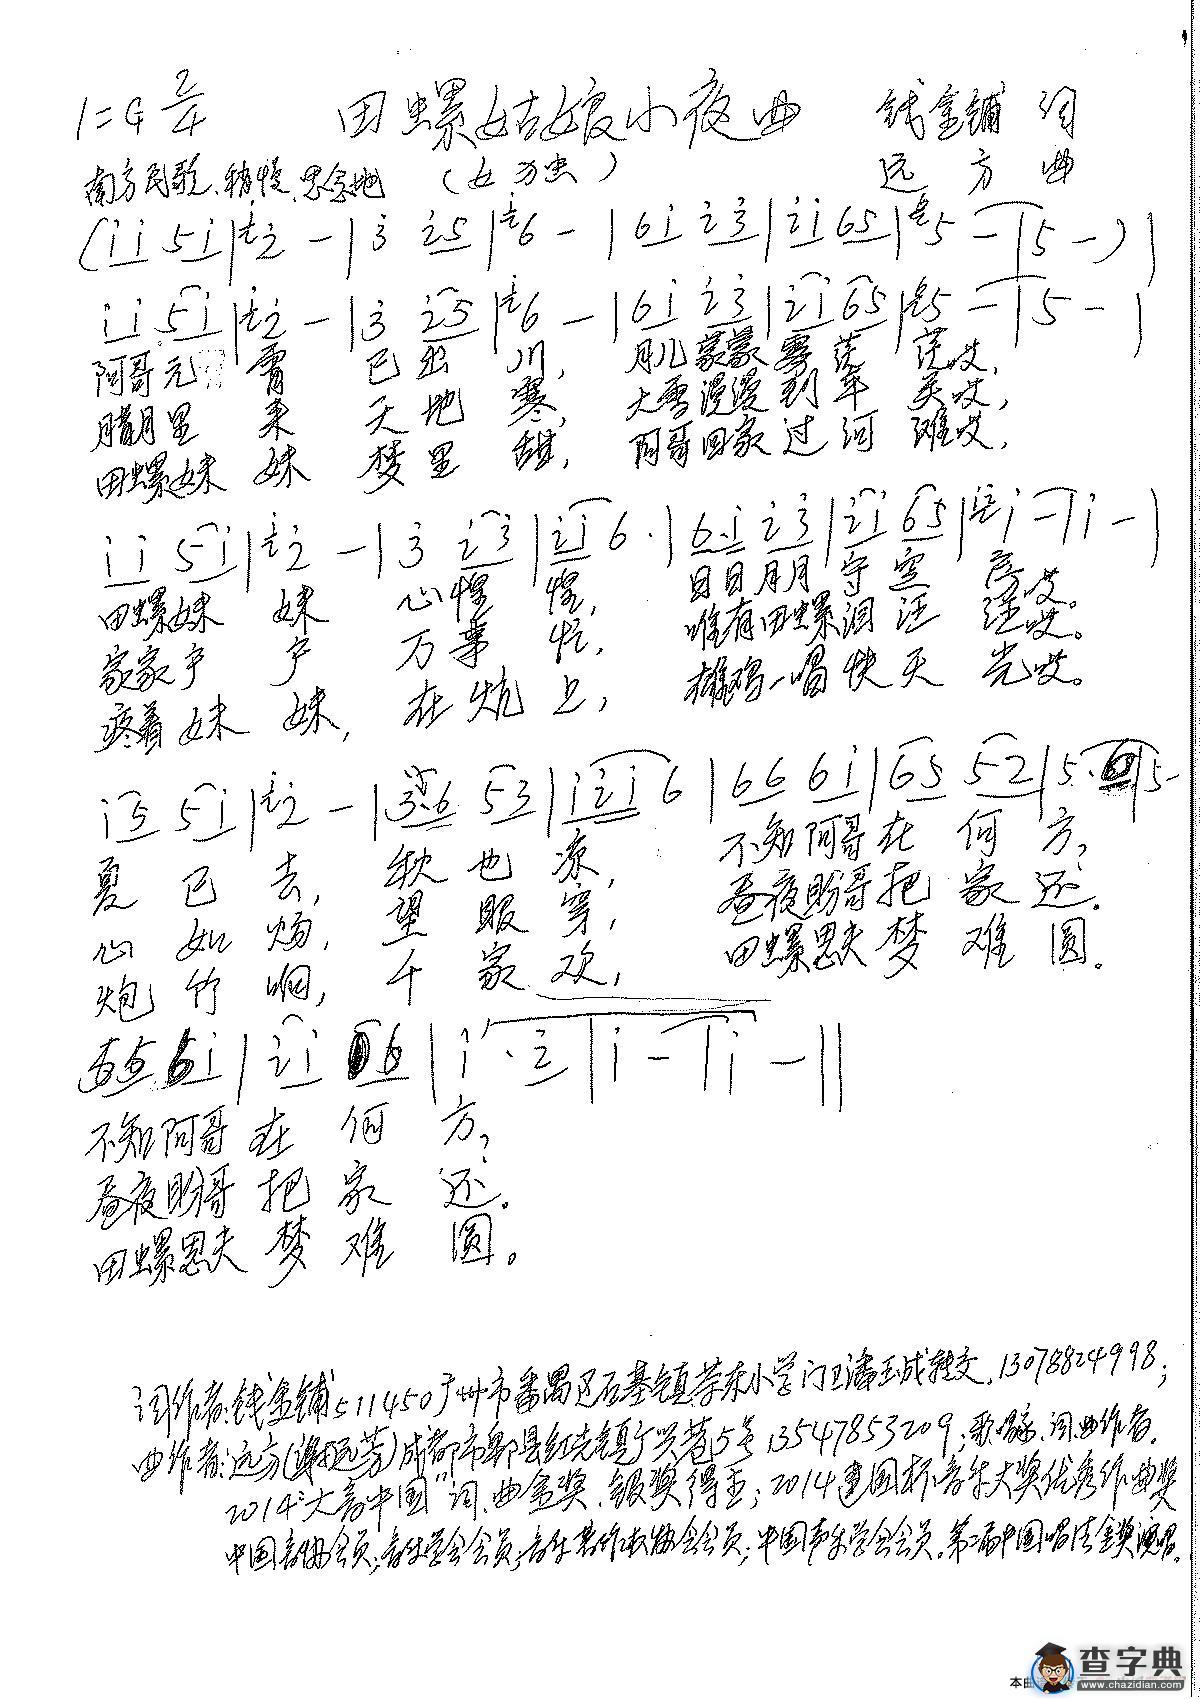 1=G 2/4 田螺姑娘小夜曲 钱金铺 词
南方民歌、稍慢、思念地 (女独) 远方 曲
(i i 5 i | i 2 - | 3 2 5 | i 6 - | 6 i 2 3 | 2 i 6 5 | 6 5 - | 5 - ) |
i i 5 i | i 2 - | 3 2 5 | i 6 - | 6 i 2 3 | 2 i 6 5 | 6 5 - | 5 - |
阿哥元宵 已出川, 月儿蒙蒙雾茫茫哎,
腊月里来 天地寒, 大雪漫漫到年关哎,
田螺妹妹 梦里甜, 阿哥回家过河滩哎,
i i 5 i | i 2 - | 3 2 3 | 2 i 6 · | 6 · i 2 3 | 2 i 6 5 | 2 i - | i - |
田螺妹妹 心惶惶, 日日月月守空房哎。
家家户户 万事忙, 唯有田螺泪汪汪哎。
疼着妹妹, 在炕上, 雄鸡一唱快天光哎。
i 5 5 i | i 2 - | 3 · 6 5 3 | i 2 i 6 | 6 6 6 i | 6 5 5 2 | 5 · 6 | 5 -
夏已去, 秋也凉, 不知阿哥在何方?
心如焬, 望眼穿, 昼夜盼哥把家还。
炮竹响, 千家欢, 田螺思夫梦难圆。
6 5 6 i | 2 i 6 | i · 2 | i - | i - ||
不知阿哥在何方?
昼夜盼哥把家还。
田螺思夫梦难圆。
词作者:钱金铺511450广州市番禺区石基镇茶东小学门卫潘玉成转交,13078824998;
曲作者:远方(谢远芳)成都市郫县红光镇广兴巷5号13547853209;歌唱家、词、曲作者。
2014"大音中国"词、曲金奖、银奖得主;2014建国杯音乐大奖优秀作曲奖
中国音协会员;音乐学会会员;音乐著作权协会会员;中国声乐学会会员。第二届中国唱法金奖演唱。
本曲
查字典
www.chazidian.com